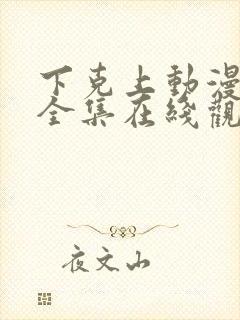 下克上動漫
全集在綫觀
夜文山